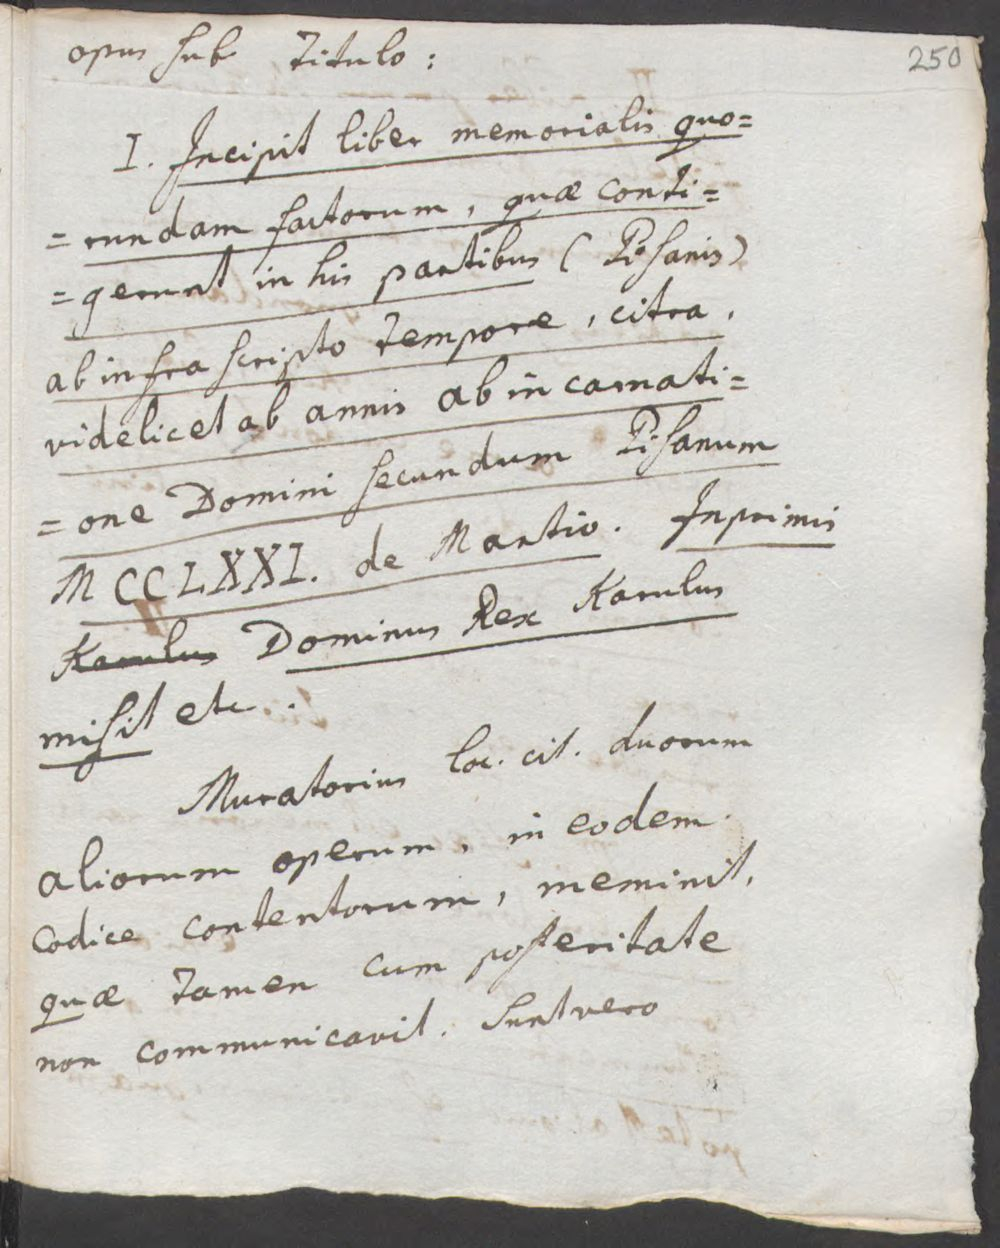 250
opus sub Titulo :
I. Incipit liber memorialis quo=
= rundam factorum, quæ conti=
= gerunt in his partibus ( Pisanis )
ab infra scripto tempore, citra,
videlicet ab annis ab incarnati=
= one Domini secundum Pisanum
MCCLXXI. de Martio. Inprimis
Karulus Dominus Rex Karulus
misit etc.
Muratorius loc. cit. duorum
aliorum operum, in eodem
Codice contentorum, meminit,
quæ tamen cum posteritate
non communicavit. Sunt vero